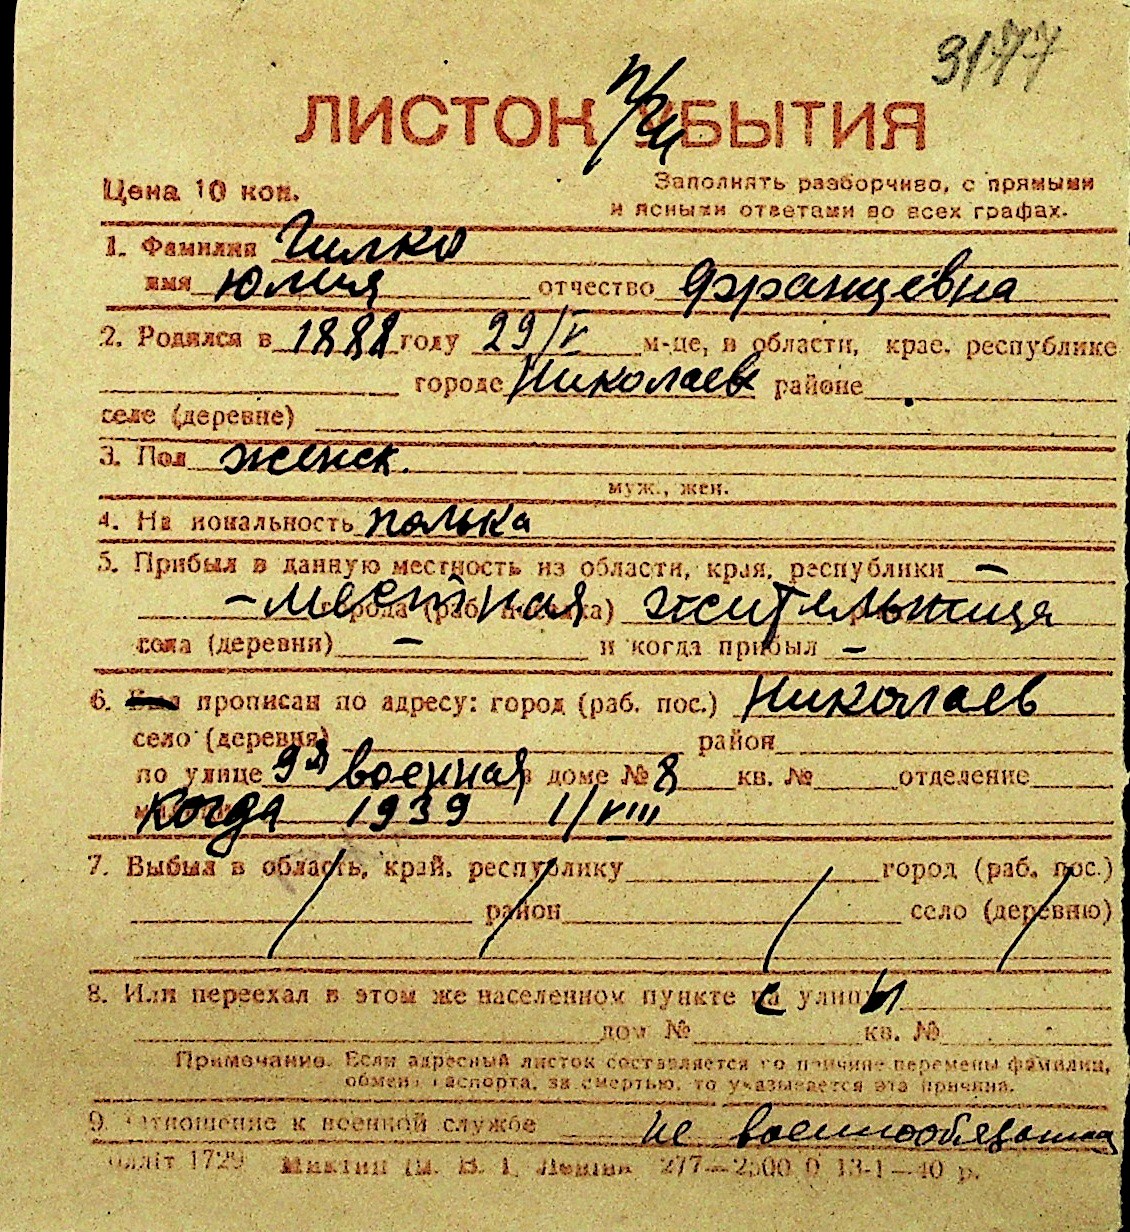 3177
ЛИСТОК УБЫТИЯ
Цена 10 коп.
Заполнять разборчиво, с прямыми
и ясными ответами во всех графах.
1. Фамилия Гилко
имя Юлия отчество Францевна
2. Родился в 1888 году 29/V м-це, в области, крае, республике
городе Николаев районе
селе (деревне)
3. Пол женск.
муж., жен.
4. На иональность полька
5. Прибыл в данную местность из области, края, республики –
– местная жительница
города (раб. поселка)
села (деревни) – и когда прибыл –
6. прописан по адресу: город (раб. пос.) Николаев
село (деревня) район
по улице 9я военная в доме № 8 кв. № отделение
когда 1939 1/VIII
7. Выбыл в область, край, республику город (раб. пос.)
район село (деревню)
8. Или переехал в этом же населенном пункте на улицу
дом № кв. №
Примечание. Если адресный листок составляется по причине перемены фамилии,
обмена паспорта, за смертью, то указывается эта причина.
9. Отношение к военной службе не военнообязанная
1729 277—2500 0 13-1—40 р.